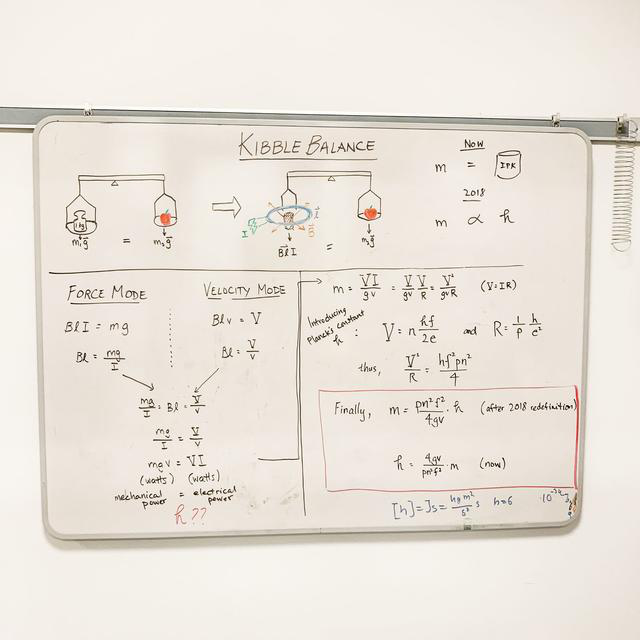 KIBBLE BALANCE
NOW
m = IPK
2018
m ∝ h
1kg
m₁g⃗ = m₂g⃗
I
B⃗
BlI = m₂g⃗
FORCE MODE
BlI = mg
Bl = mg/I
VELOCITY MODE
Blv = V
Bl = V/v
mg/I = Bl = V/v
mg/I = V/v
mgv = VI
(watts) (watts)
mechanical power = electrical power
h??
m = VI/gv = V/gv V/R = V²/gvR (V=IR)
Introducing
Planck's constant
h : V = n hf/2e and R = 1/p h/e²
thus, V²/R = hf²pn²/4
Finally, m = pn²f²/4gv · h (after 2018 redefinition)
h = 4gv/pn²f² · m (now)
[h] = Js = kg m²/s² s h=6 ·10⁻³⁴ J